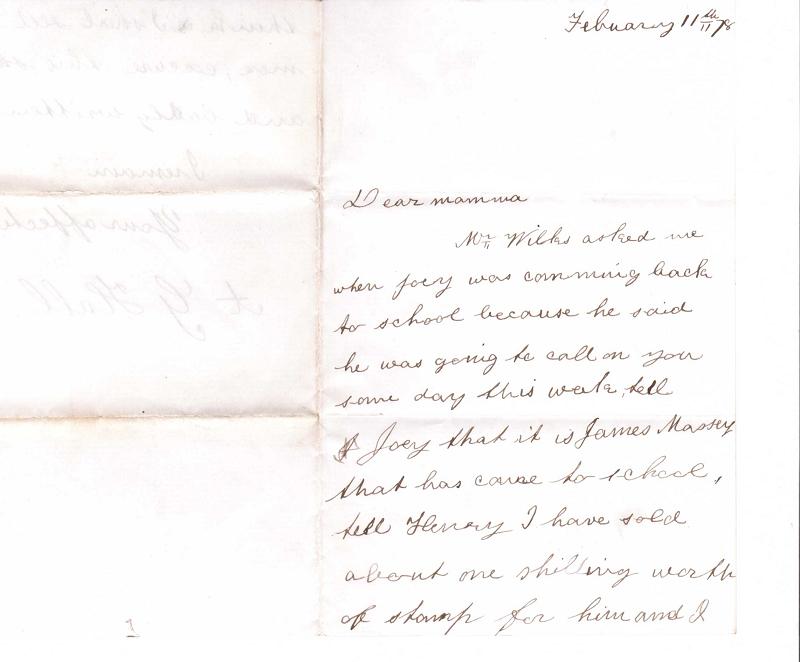 February 11th 78
Dear mamma
Mr Wilks asked me
when Joey was comming back
to school because he said
he was going to call on you
some day this week, tell
Joey that it is James Massey
that has come to school,
tell Henry I have sold
about one shilling worth
of stamp for him and I
1